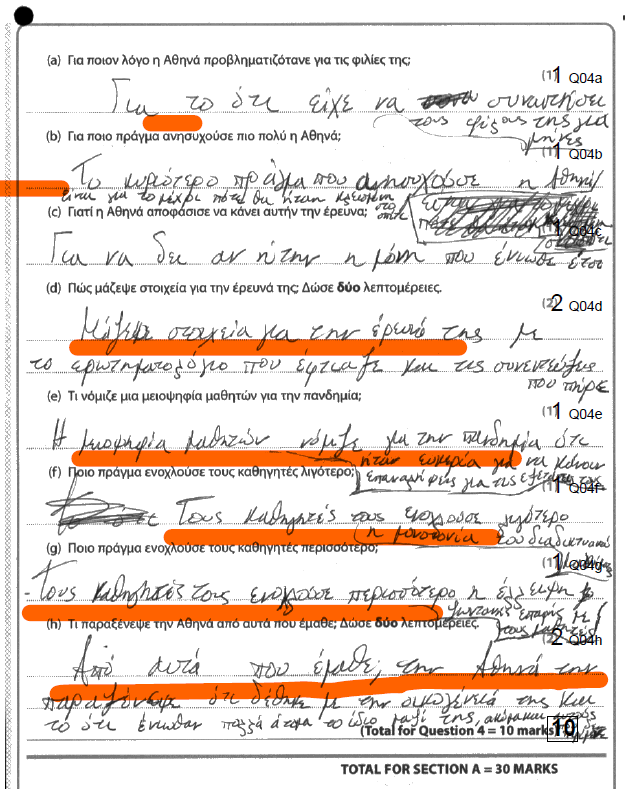 (a) Για ποιον λόγο η Αθηνά προβληματιζότανε για τις φιλίες της;
(1) 1 Q04a
Για το ότι είχε να συναντήσει
τους φίλους της για
μήνες
(b) Για ποιο πράγμα ανησυχούσε πιο πολύ η Αθηνά;
(1) 1 Q04b
Το κυριότερο πράγμα που ανησυχούσε η Αθηνά
είναι για το μέχρι πότε θα ήταν κλεισμένη
στο σπίτι
(c) Γιατί η Αθηνά αποφάσισε να κάνει αυτήν την έρευνα;
1 Q04c
Για να δει αν ήταν η μόνη που ένιωθε έτσι
(d) Πώς μάζεψε στοιχεία για την έρευνά της; Δώσε δύο λεπτομέρειες.
(2) 2 Q04d
Μάζεψε στοιχεία για την έρευνά της με
το ερωτηματολόγιο που έφτιαξε και τις συνεντεύξεις
που πήρε
(e) Τι νόμιζε μια μειοψηφία μαθητών για την πανδημία;
(1) 1 Q04e
Η μειοψηφία μαθητών νόμιζε για την πανδημία ότι
ήταν ευκαιρία για να κάνουν
(f) Ποιο πράγμα ενοχλούσε τους καθηγητές λιγότερο;
επαναλήψεις για τις εξετάσεις τους
(1) 1 Q04f
Τους καθηγητές τους ενοχλούσε λιγότερο
η μονοτονία του διαδικτυακού
(g) Ποιο πράγμα ενοχλούσε τους καθηγητές περισσότερο;
(1) 1 Q04g
- Τους καθηγητές τους ενοχλούσε περισσότερο η έλλειψη
ζωντανής επαφής με
τους μαθητές
(h) Τι παραξένεψε την Αθηνά από αυτά που έμαθε; Δώσε δύο λεπτομέρειες.
(2) 2 Q04h
Από αυτά που έμαθε, την Αθηνά την
παραξένεψε ότι δέθηκε με την οικογένειά της και
το ότι ένιωθαν πολλά άτομα το ίδιο μαζί της, ακόμα και
(Total for Question 4 = 10 marks) 10
TOTAL FOR SECTION A = 30 MARKS